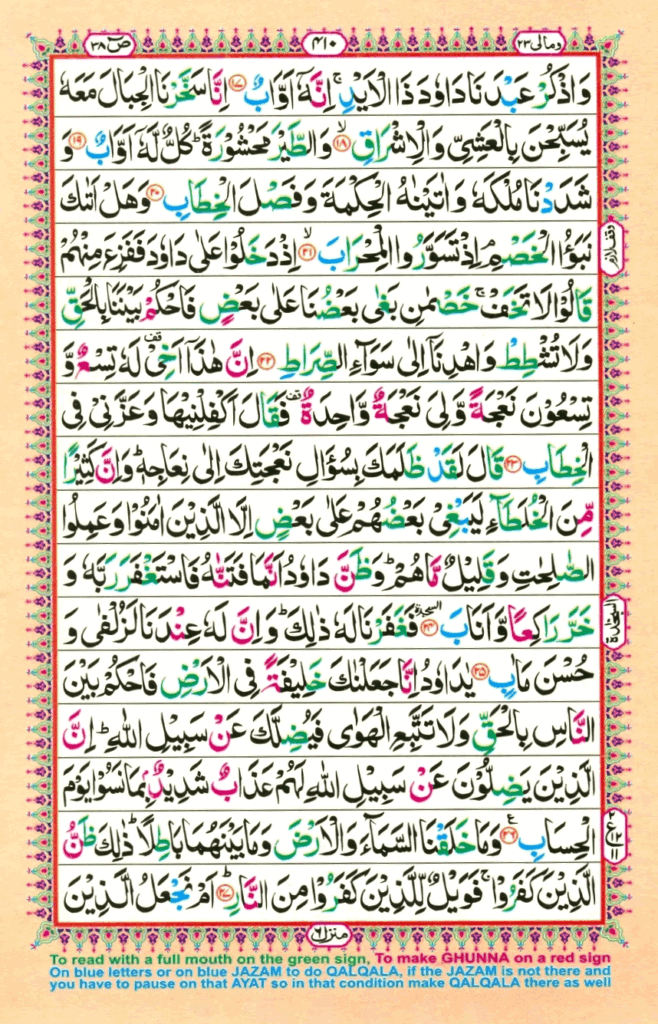 ومالی ٢٣
٤١٠
ص ٣٨
وَاذْكُرْ عَبْدَنَا دَاوٗدَ ذَا الْاَيْدِ ۚ اِنَّهٗۤ اَوَّابٌ ﴿١٧﴾ اِنَّا سَخَّرْنَا الْجِبَالَ مَعَهٗ
يُسَبِّحْنَ بِالْعَشِیِّ وَالْاِشْرَاقِ ۙ﴿١٨﴾ وَالطَّيْرَ مَحْشُوْرَةً ؕ كُلٌّ لَّهٗۤ اَوَّابٌ ﴿١٩﴾ وَ
شَدَدْنَا مُلْكَهٗ وَاٰتَيْنٰهُ الْحِكْمَةَ وَفَصْلَ الْخِطَابِ ﴿٢٠﴾ وَهَلْ اَتٰىكَ
نَبَؤُا الْخَصْمِ ۘ اِذْ تَسَوَّرُوا الْمِحْرَابَ ۙ﴿٢١﴾ اِذْ دَخَلُوْا عَلٰی دَاوٗدَ فَفَزِعَ مِنْهُمْ
قَالُوْا لَا تَخَفْ ۚ خَصْمٰنِ بَغٰی بَعْضُنَا عَلٰی بَعْضٍ فَاحْكُمْ بَيْنَنَا بِالْحَقِّ
وَلَا تُشْطِطْ وَاهْدِنَاۤ اِلٰی سَوَآءِ الصِّرَاطِ ﴿٢٢﴾ اِنَّ هٰذَاۤ اَخِیْ ۟ قف لَهٗ تِسْعٌ وَّ
تِسْعُوْنَ نَعْجَةً وَّلِیَ نَعْجَةٌ وَّاحِدَةٌ ۟ قف فَقَالَ اَكْفِلْنِيْهَا وَعَزَّنِیْ فِی
الْخِطَابِ ﴿٢٣﴾ قَالَ لَقَدْ ظَلَمَكَ بِسُؤَالِ نَعْجَتِكَ اِلٰی نِعَاجِهٖ ؕ وَاِنَّ كَثِيْرًا
مِّنَ الْخُلَطَآءِ لَيَبْغِیْ بَعْضُهُمْ عَلٰی بَعْضٍ اِلَّا الَّذِيْنَ اٰمَنُوْا وَعَمِلُوا
الصّٰلِحٰتِ وَقَلِيْلٌ مَّا هُمْ ؕ وَظَنَّ دَاوٗدُ اَنَّمَا فَتَنّٰهُ فَاسْتَغْفَرَ رَبَّهٗ وَ
خَرَّ رَاكِعًا وَّاَنَابَ ﴿٢٤﴾ السجدة فَغَفَرْنَا لَهٗ ذٰلِكَ ؕ وَاِنَّ لَهٗ عِنْدَنَا لَزُلْفٰی وَ
حُسْنَ مَاٰبٍ ﴿٢٥﴾ يٰدَاوٗدُ اِنَّا جَعَلْنٰكَ خَلِيْفَةً فِی الْاَرْضِ فَاحْكُمْ بَيْنَ
النَّاسِ بِالْحَقِّ وَلَا تَتَّبِعِ الْهَوٰی فَيُضِلَّكَ عَنْ سَبِيْلِ اللّٰهِ ؕ اِنَّ
الَّذِيْنَ يَضِلُّوْنَ عَنْ سَبِيْلِ اللّٰهِ لَهُمْ عَذَابٌ شَدِيْدٌۢ بِمَا نَسُوْا يَوْمَ
الْحِسَابِ ﴿٢٦﴾ ع وَمَا خَلَقْنَا السَّمَآءَ وَالْاَرْضَ وَمَا بَيْنَهُمَا بَاطِلًا ؕ ذٰلِكَ ظَنُّ
الَّذِيْنَ كَفَرُوْا ۚ فَوَيْلٌ لِّلَّذِيْنَ كَفَرُوْا مِنَ النَّارِ ؕ﴿٢٧﴾ اَمْ نَجْعَلُ الَّذِيْنَ
السجدة
منزل ٦
To read with a full mouth on the green sign, To make GHUNNA on a red sign
On blue letters or on blue JAZAM to do QALQALA, if the JAZAM is not there and
you have to pause on that AYAT so in that condition make QALQALA there as well